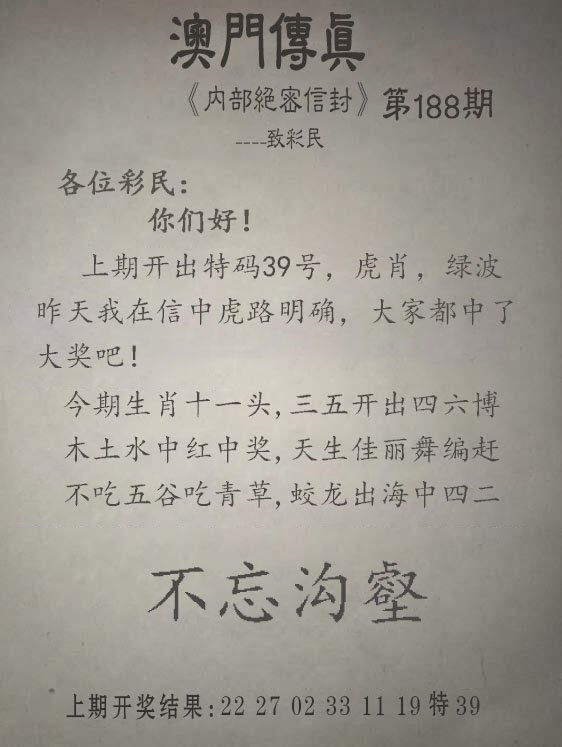 澳門傳真
《内部絕密信封》第188期
----致彩民
各位彩民:
你们好!
上期开出特码39号，虎肖，绿波
昨天我在信中虎路明确，大家都中了
大奖吧!
今期生肖十一头,三五开出四六博
木土水中红中奖,天生佳丽舞编赶
不吃五谷吃青草,蛟龙出海中四二
不忘沟壑
上期开奖结果:22 27 02 33 11 19特39